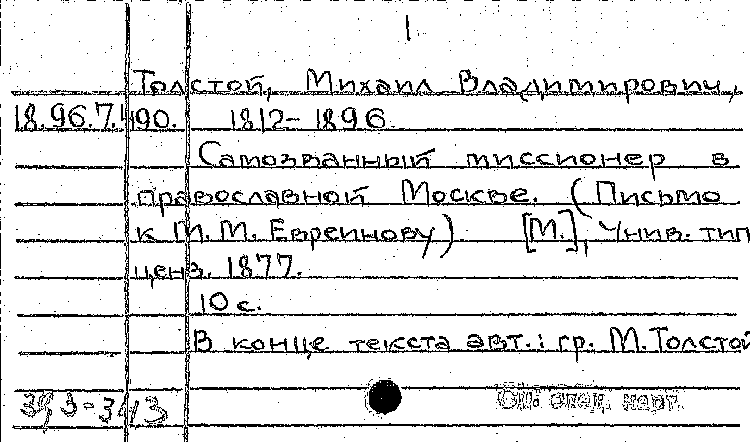 1
Толстой, Михаил Владимирович,
18.96.7.490. 1812-1896.
Самозванный миссионер в
православной Москве. (Письмо
к М.М. Евреинову) [М.], Унив. тип
ценз. 1877.
10 с.
В конце текста авт.: гр. М.Толстой